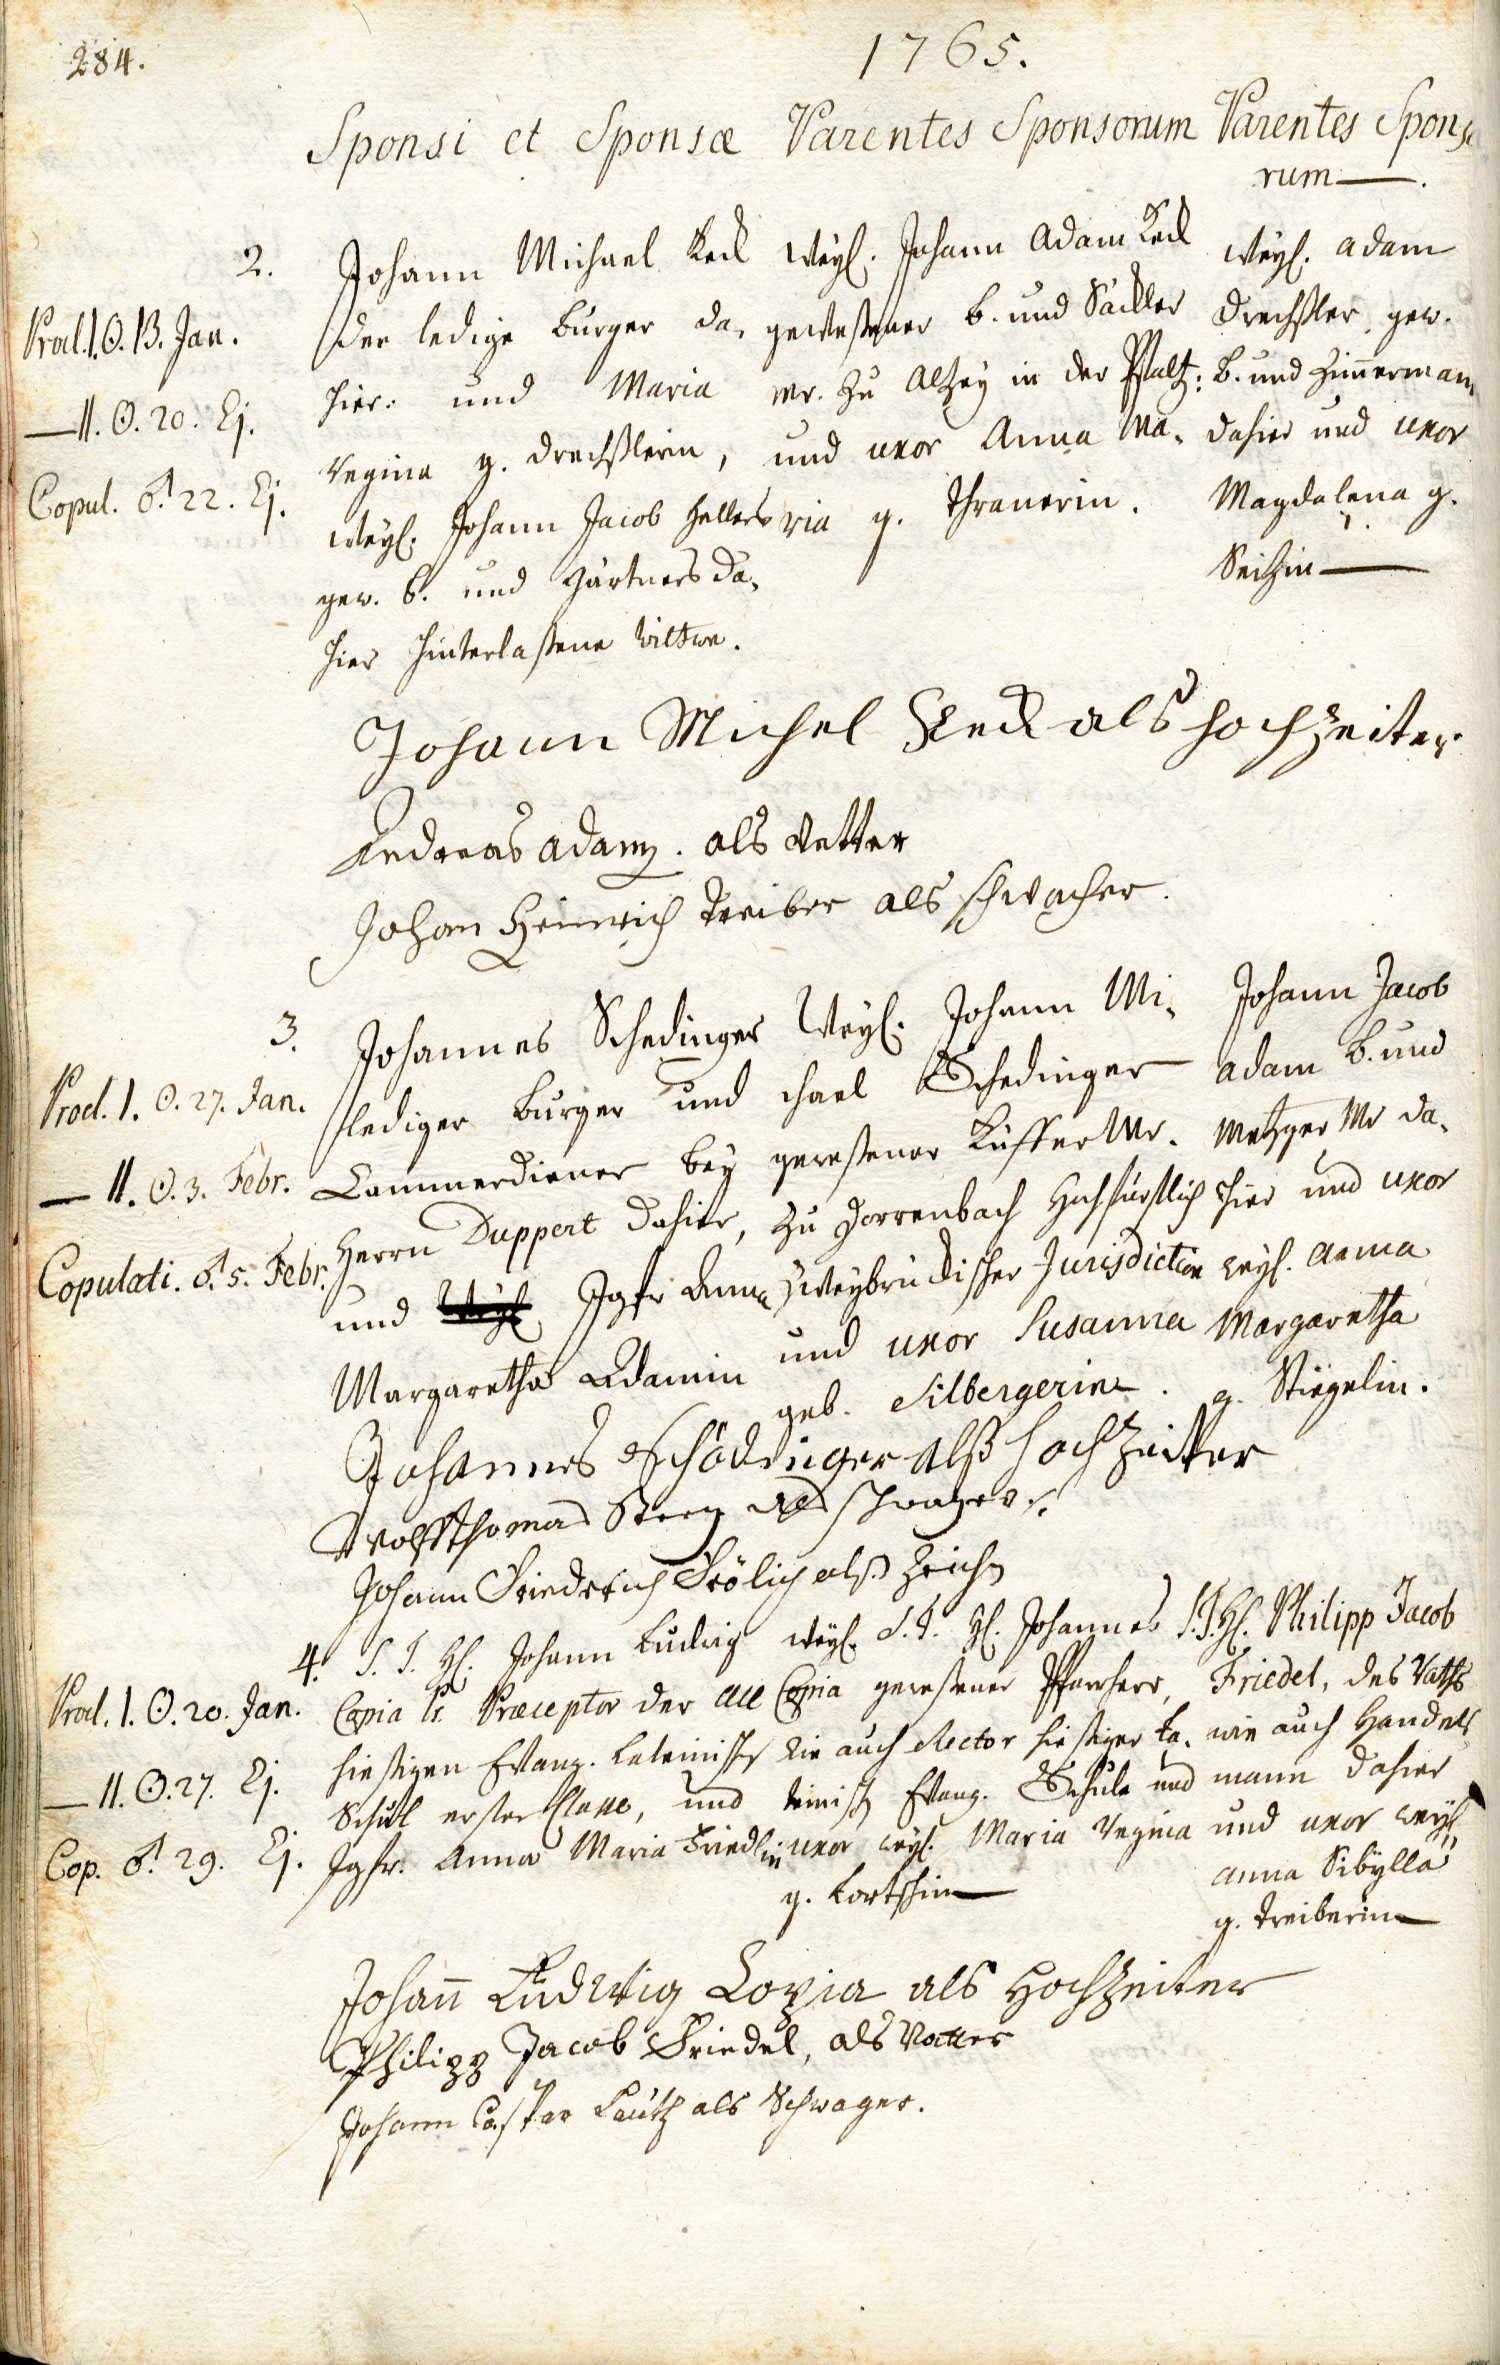 284.
1765.
Sponsi et Sponsæ Parentes Sponsorum Parentes Sponsa
rum —.
2.
Procl. I. ☉. 13. Jan.
— II. ☉. 20. Ej.
Copul. ♂. 22. Ej.
Johann Michael Keck
der ledige Burger da,
hier: und Maria
Regina g. Drechßlerin,
weyl. Johann Jacob Hellers
gew. b. und Gärtners da,
hier hinterlaßene Wittwe.
Weyl. Johann Adam Keck
geweßener b. und Säckler
mr. zu Altzey in der Pfaltz:
und uxor Anna Ma,
ria g. Thranerin.
Weyl. Adam
Drechßler, gew.
b. und Zimmerman
dahier und uxor
Magdalena g.
Seitzin —
Johann Michel Keck als hochzeiter
Andreas Adam. als Vetter
Johan Heinrich Treiber als schwacher.
3.
Procl. I. ☉. 27. Jan.
— II. ☉. 3. Febr.
Copulati. ♂. 5. Febr.
Johannes Schedinger
lediger Burger und
Cammerdiener bey
Herrn Duppert dahier,
und Jgfr Anna
Margaretha Adamin
Weyl. Johann Mi,
chael Schedinger
geweßener Küffer Mr.
zu Dorrenbach Hochfürstlich
Zweybrückischer Jurisdiction
und uxor Susanna
geb. Silbergerin.
Johann Jacob
Adam b. und
Metzger Mr da,
hier und uxor
weyl. Anna
Margaretha
g. Stiegelin.
Johannes Schödinger alß hochzeitter
Wolffthomas Steeg als schwager
Johann Friedrich Frölich alß Zeich
4.
Procl. I. ☉. 20. Jan.
— II. ☉. 27. Ej.
Cop. ♂. 29. Ej.
S. T. H. Johann Ludwig
Copia Præceptor der
hießigen Evang. Lateinisch
Schul erster Classe, und
Jgfr. Anna Maria Friedlin
weyl. S. T. H. Johannes
Copia geweßener Pfarrherr,
wie auch Rector hießiger La,
teinisch Evang. Schule und
uxor weyl. Maria Regina
g. Lortschin —
S. T. H. Philipp Jacob
Friedel, des Raths
wie auch Handels
mann dahier
und uxor weyl.
Anna Sibylla
g. Treiberin —
Johann Ludwig Copia als Hochzeiter
Philipp Jacob Friedel, als Vatter
Johann Caspar Lautz als Schwager.